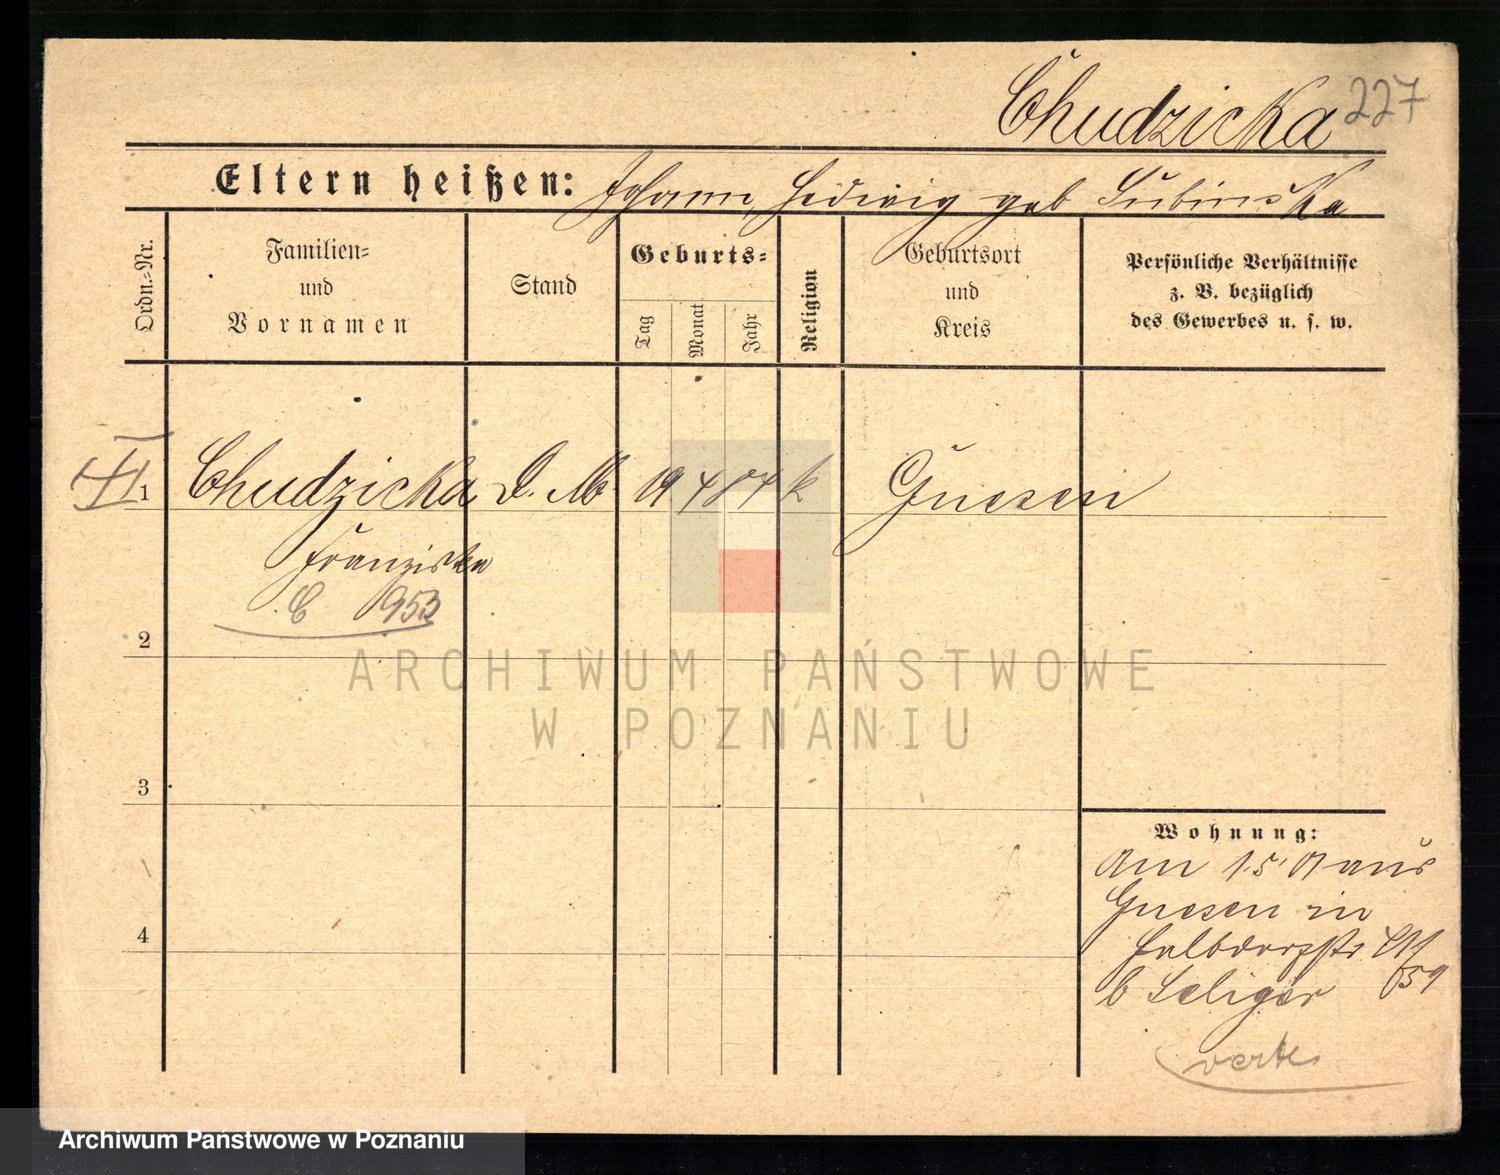 Chudzicka 227
Eltern heißen: Johann, Hedwig geb Lubinska
Ordn.-Nr.
Familien-
und
Vornamen
Stand
Geburts-
Tag
Monat
Jahr
Religion
Geburtsort
und
Kreis
Persönliche Verhältnisse
z. B. bezüglich
des Gewerbes u. s. w.
1 Chudzicka D. M. 19 4 84 k Gnesen
Franziska
C 953
2
3
4
Wohnung:
Am aus
Gnesen in
Halbdorfstr
b Seliger 59
verte
ARCHIWUM PAŃSTWOWE
W POZNANIU
Archiwum Państwowe w Poznaniu